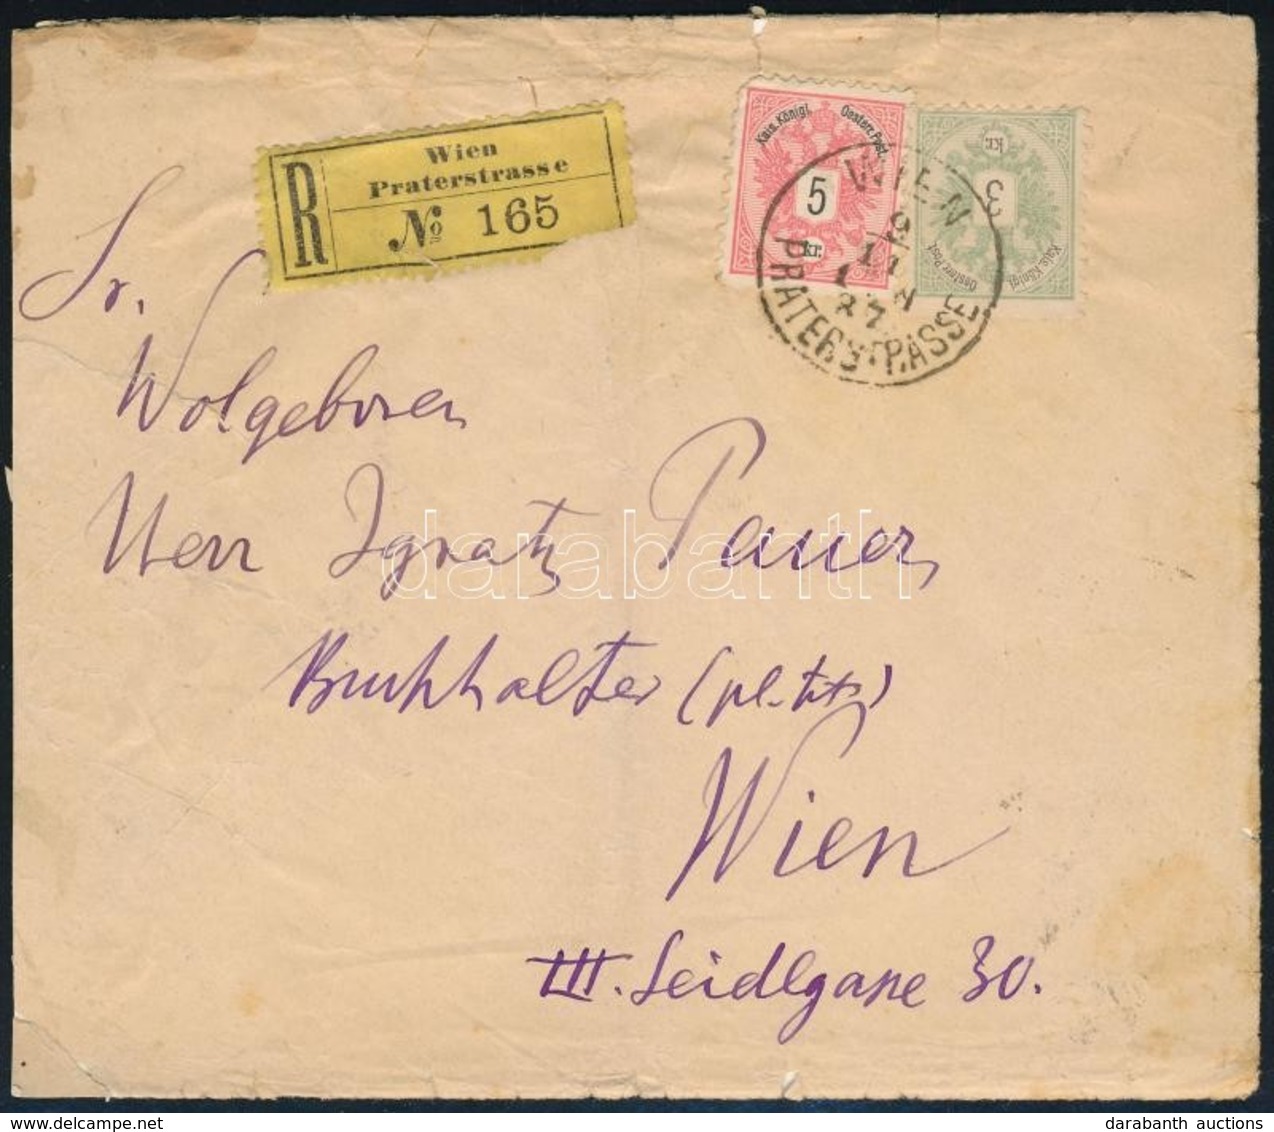 Wien
Praterstrasse
R № 165
Kais. Königl. Oesterr. Post.
5
kr.
kr.
3
Kais. Königl. Oesterr. Post
WIEN
9
11
87
PRATERSTRASSE
Sr.
Wolgeboren
Herr Ignatz Pauer,
Buchhalter (pl. tit.)
Wien
III. Seidlgasse 30.
darabanth
darabanth auctions